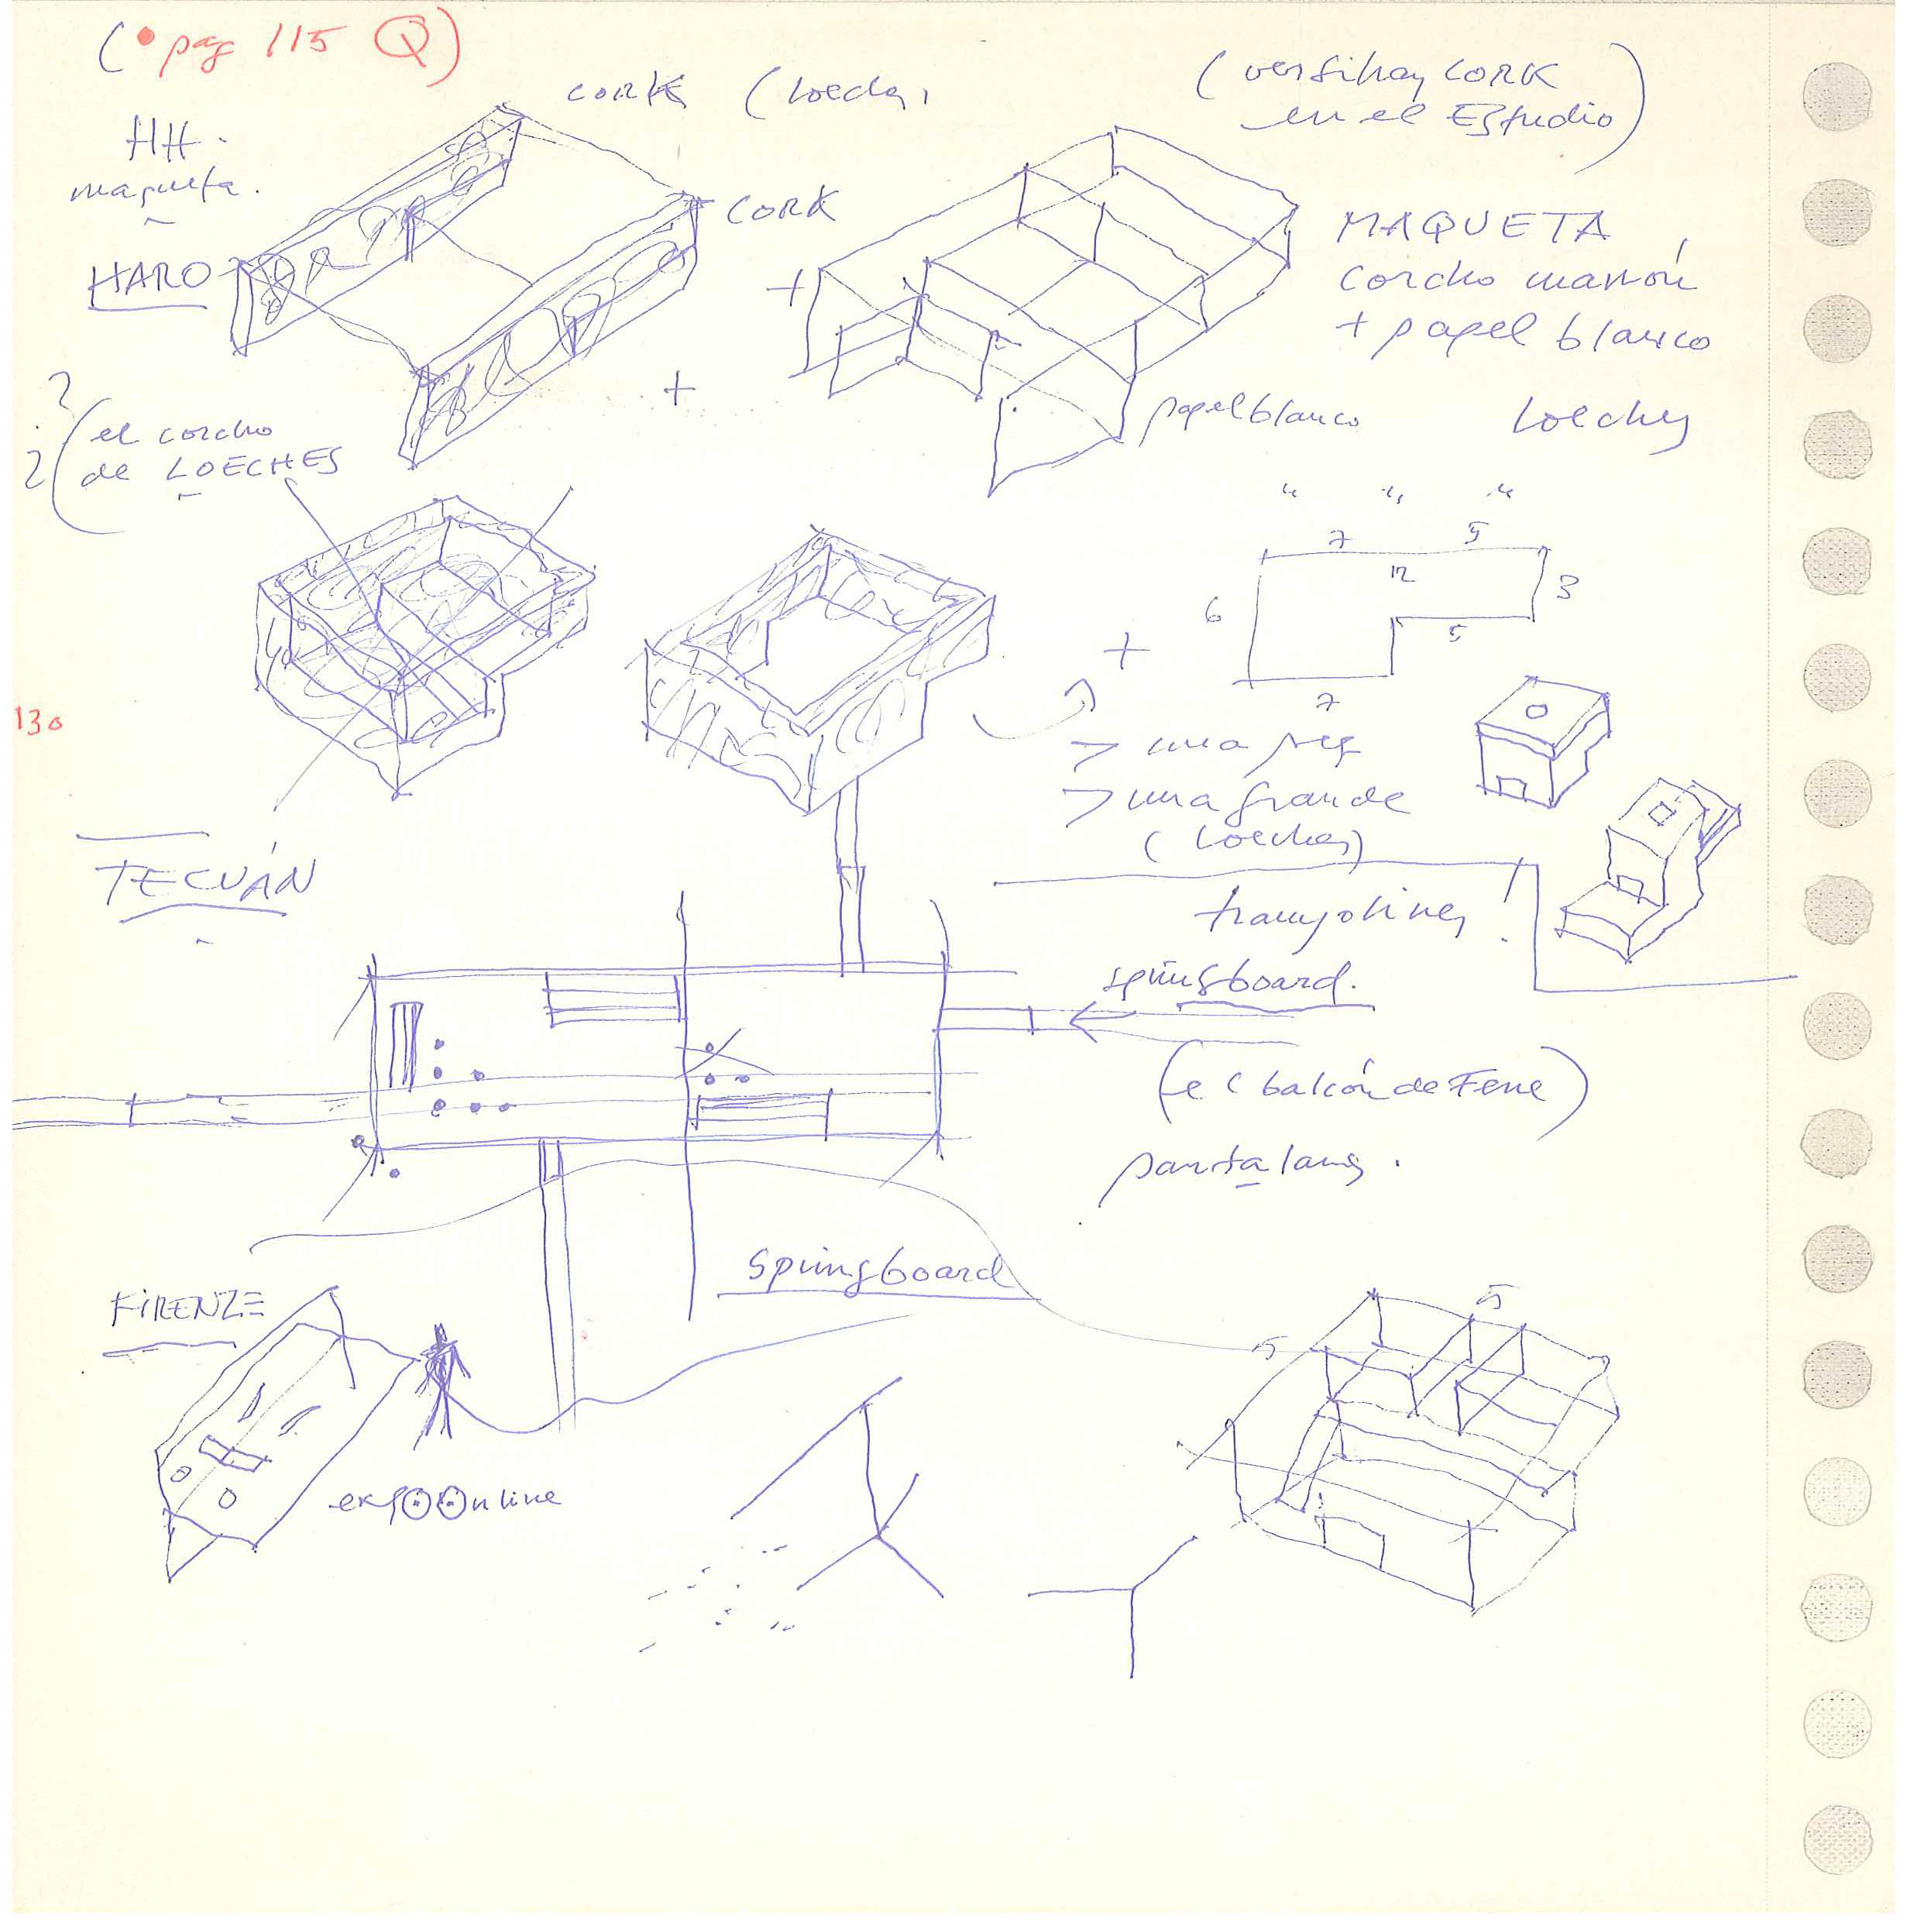 (• pag 115 Q)
CORK (Loeches
(ver si hay CORK
en el Estudio)
HH.
maqueta.
CORK
HARO
+
MAQUETA,
corcho marrón
+ papel blanco
+
papel blanco
Loeches
¿? (el corcho
de LOECHES
" " "
7 5
12
6
3
5
+
7
130
> una peq
> una grande
(Loeches)
TECUÁN
trampolines!
springboard.
(el balcón de Fene)
pantalanes.
springboard
FIRENZE
5
5
expOOnline